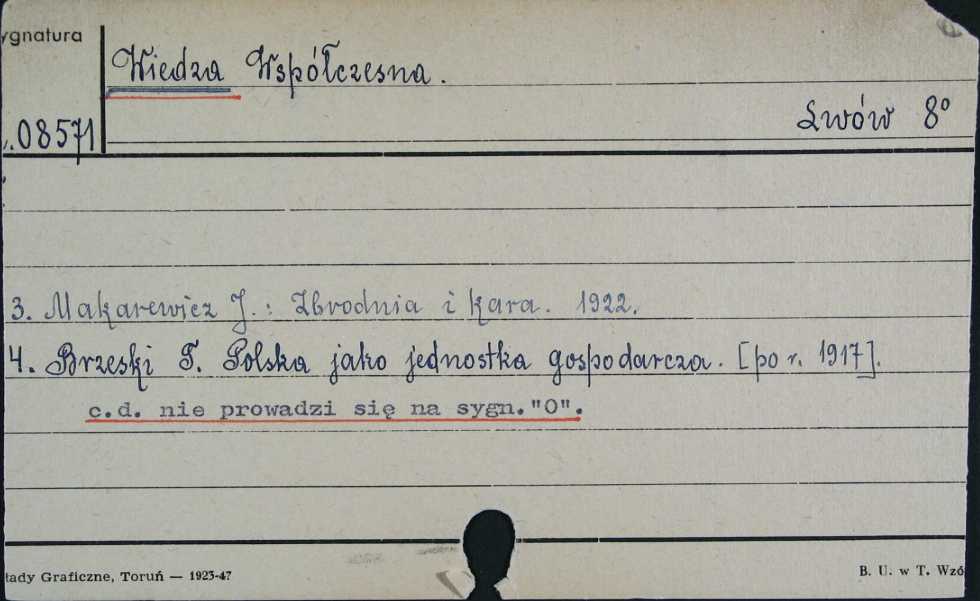 ygnatura
Wiedza Współczesna.
Lwów 8°
.08571
3. Makarewicz J.: Zbrodnia i kara. 1922.
4. Brzeski T. Polska jako jednostka gospodarcza. [po r. 1917].
c.d. nie prowadzi się na sygn."O".
łady Graficzne, Toruń — 1923-47
B. U. w T. Wzó